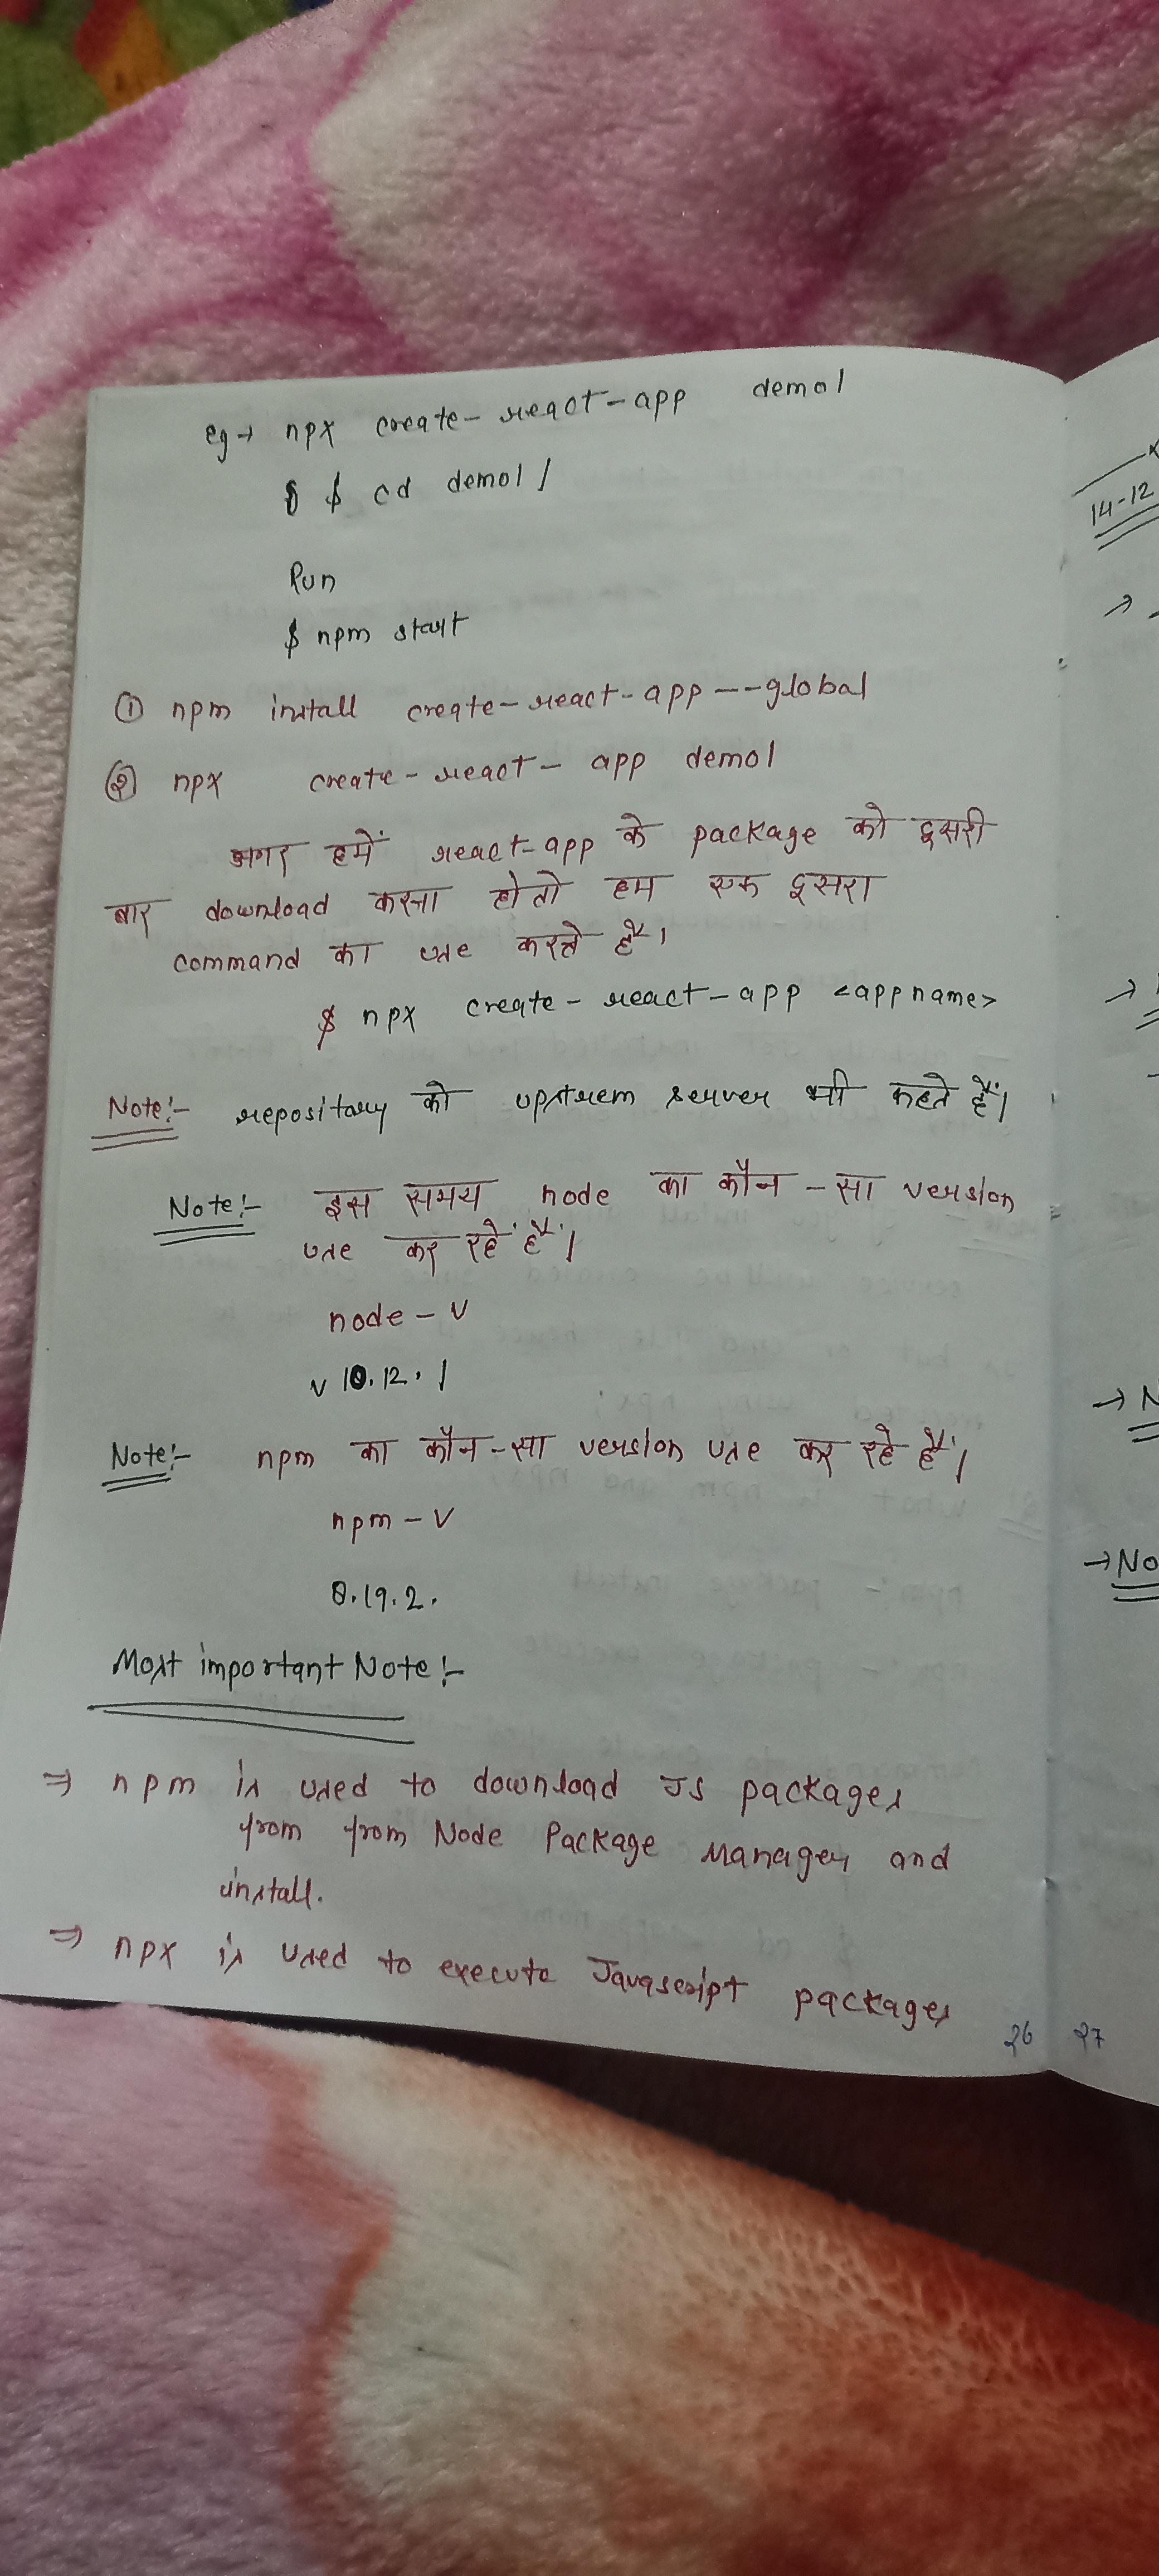 eg→ npx create-react-app demo1
$ $ cd demo1/
Run
$ npm start
① npm install create-react-app --global
② npx create-react-app demo1
अगर हमें react-app के package को दुसरी
बार download करना हो तो हम एक दुसरा
command का use करते हैं।
$ npx create-react-app <appname>
Note:- repositary को upstrem server भी कहते हैं।
Note:- इस समय node का कौन-सा version
use कर रहें हैं।
node -v
v 10.12.1
Note:- npm का कौन-सा version use कर रहे हैं।
npm -v
8.19.2.
Most important Note:-
⇒ npm is used to download JS packages
from from Node Package Manager and
install.
⇒ npx is used to execute Javascript packages
26
14-12
→
→
→ N
→ No
27